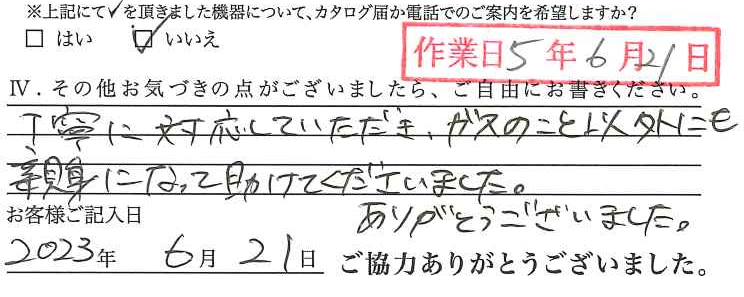 ※上記にて✓を頂きました機器について、カタログ届か電話でのご案内を希望しますか?
□ はい ☑ いいえ
作業日 5 年 6 月 21 日
Ⅳ．その他お気づきの点がございましたら、ご自由にお書きください。
丁寧に対応していただき、ガスのこと以外にも
親身になって助けてくださいました。
ありがとうございました。
お客様ご記入日
2023年 6月 21日 ご協力ありがとうございました。